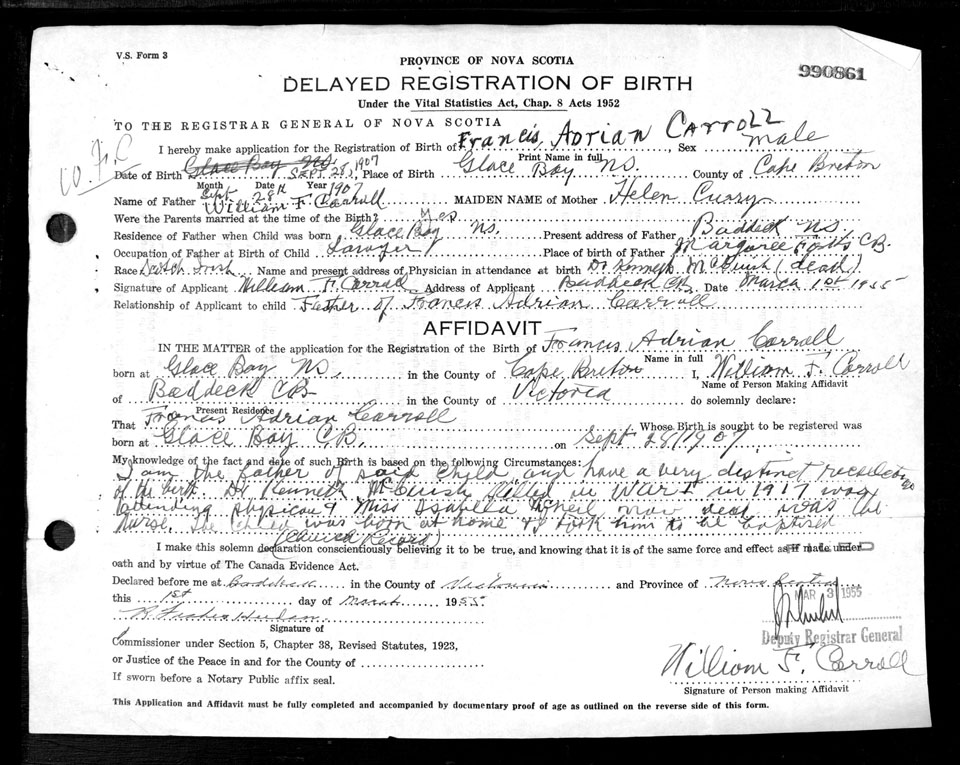 V.S. Form 3
PROVINCE OF NOVA SCOTIA
990861
DELAYED REGISTRATION OF BIRTH
Under the Vital Statistics Act, Chap. 8 Acts 1952
TO THE REGISTRAR GENERAL OF NOVA SCOTIA
I hereby make application for the Registration of Birth of Francis Adrian Carroll, Sex male
Print Name in full
Date of Birth Glace Bay NS. SEPT 28, 1907 Place of Birth Glace Bay NS. County of Cape Breton
Month Date Year
Sept 28th 1907
Name of Father William F Carroll MAIDEN NAME of Mother Helen Curry
Were the Parents married at the time of the Birth? yes
Residence of Father when Child was born Glace Bay NS. Present address of Father Baddeck NS.
Occupation of Father at Birth of Child Lawyer Place of birth of Father Margaree Forks CB.
Race Scotch Irish Name and present address of Physician in attendance at birth Dr Kenneth McCuish (dead)
Signature of Applicant William F. Carroll Address of Applicant Baddeck CB Date March 1st 1955
Relationship of Applicant to child Father of Francis Adrian Carroll
AFFIDAVIT
IN THE MATTER of the application for the Registration of the Birth of Francis Adrian Carroll
Name in full
born at Glace Bay NS. in the County of Cape Breton I, William F. Carroll
Name of Person Making Affidavit
of Baddeck CB in the County of Victoria do solemnly declare:
Present Residence
That Francis Adrian Carroll Whose Birth is sought to be registered was
born at Glace Bay CB. on Sept 28/1907
My knowledge of the fact and date of such Birth is based on the following Circumstances:
I am the father of said child and have a very distinct recollection
of the birth. Dr Kenneth McCuish killed in War I in 1917 was
attending physician & Miss Isabella McNeil now dead was the
Nurse. The child was born at home & I took him to be baptised
(Church Record)
I make this solemn declaration conscientiously believing it to be true, and knowing that it is of the same force and effect as if made under
oath and by virtue of The Canada Evidence Act.
Declared before me at Baddeck in the County of Victoria and Province of Nova Scotia
this 1st day of March 1955.
MAR 3 1955
Signature of
Deputy Registrar General
Commissioner under Section 5, Chapter 38, Revised Statutes, 1923,
or Justice of the Peace in and for the County of
William F. Carroll
If sworn before a Notary Public affix seal.
Signature of Person making Affidavit
This Application and Affidavit must be fully completed and accompanied by documentary proof of age as outlined on the reverse side of this form.